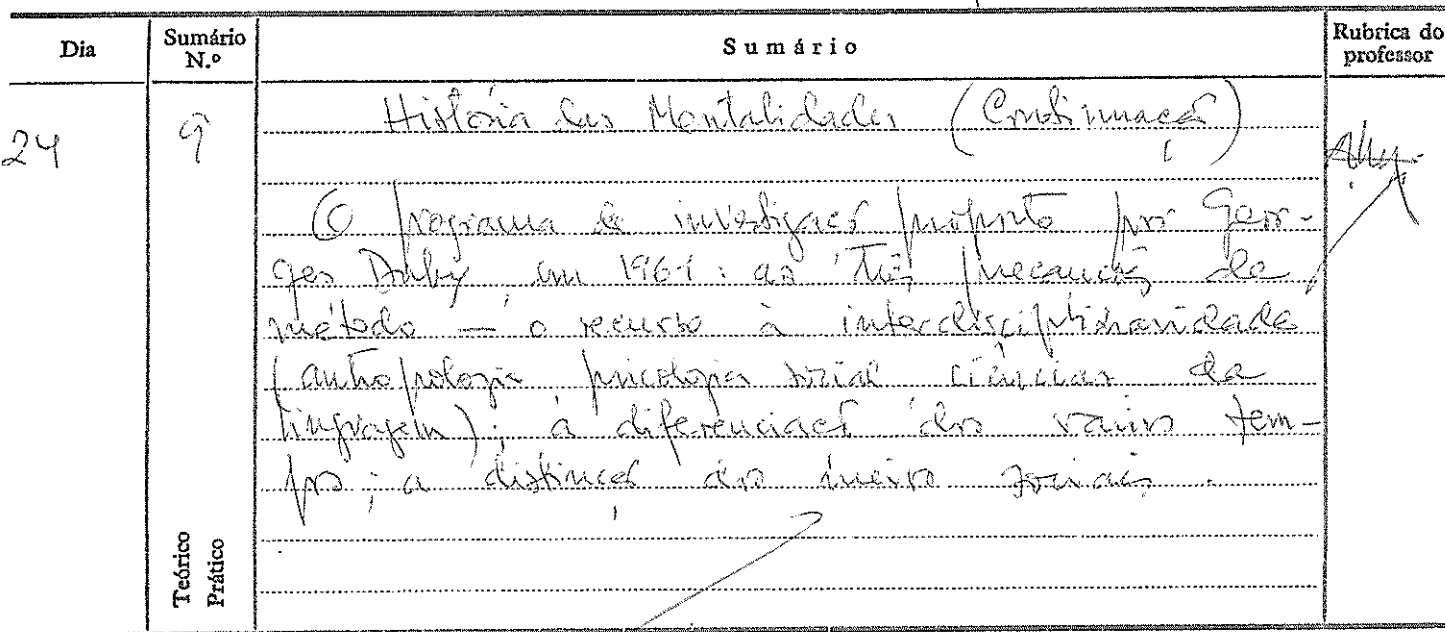 Dia
Sumário N.º
Sumário
Rubrica do professor
24
9
História das Mentalidades (Continuação)
O programa de investigação proposto por Geor-
ges Duby, em 1961: as três precauções de
método — o recurso à interdisciplinaridade
(antropologia psicologia social ciências da
linguagem); a diferenciação dos vários tem-
pos; a distinção dos meios sociais.
Teórico
Prático